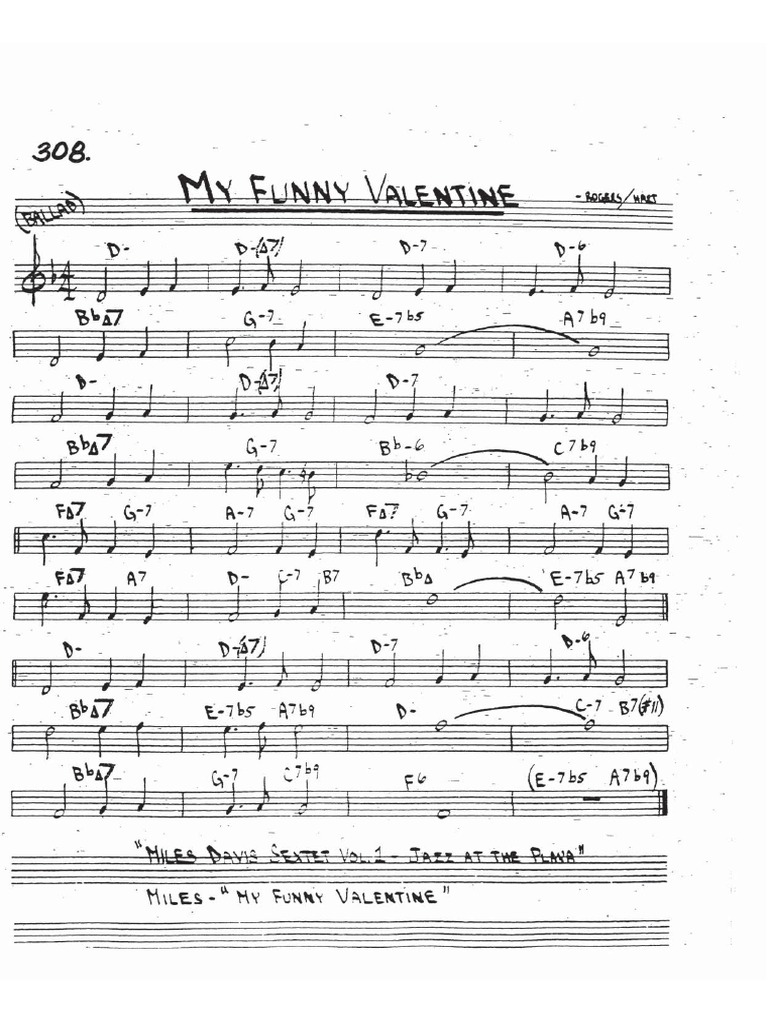 308.
MY FUNNY VALENTINE
- ROGERS/HART
(BALLAD)
D- D-(Δ7) D-7 D-6
BbΔ7 G-7 E-7b5 A7b9
D- D-(Δ7) D-7
BbΔ7 G-7 Bb-6 C7b9
FΔ7 G-7 A-7 G-7 FΔ7 G-7 A-7 G-7
FΔ7 A7 D- C-7 B7 BbΔ E-7b5 A7b9
D- D-(Δ7) D-7 D-6
BbΔ7 E-7b5 A7b9 D- C-7 B7(#11)
BbΔ7 G-7 C7b9 F6 (E-7b5 A7b9)
"MILES DAVIS SEXTET VOL.1 - JAZZ AT THE PLAZA"
MILES - "MY FUNNY VALENTINE"